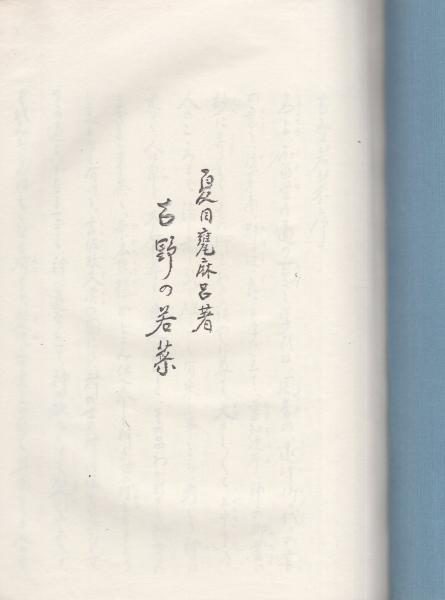 夏目甕麻呂著
古野の若菜